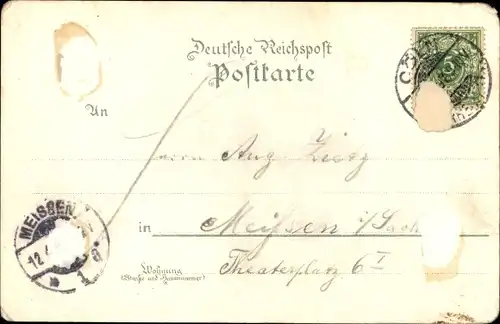 Deutsche Reichspost
Postkarte
5
CÖLN
An
Herrn Aug.
MEISSEN
12.
1
in Meißen i/Sach
Wohnung
(Straße und Hausnummer)
Theaterplatz 6 I